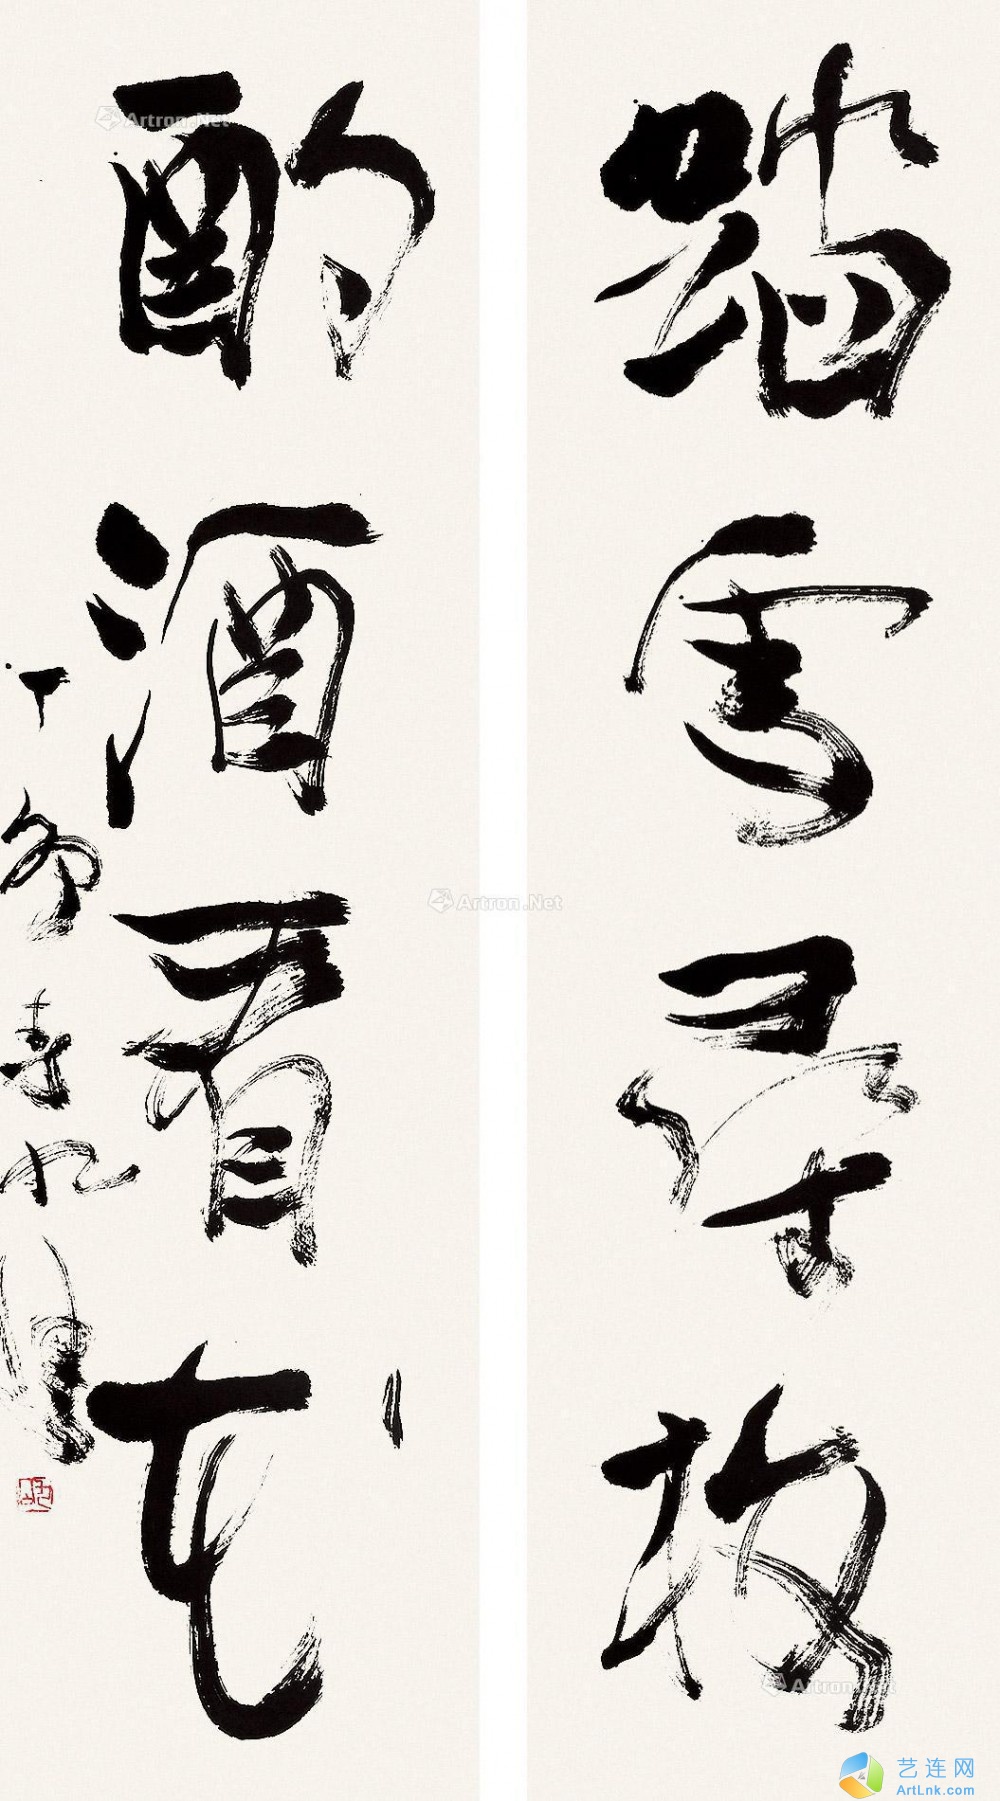 踏雪尋梅
酌酒看花
丁卯春
Artron.Net
Artron.Net
Artron.Net
艺连网
ArtLnk.com